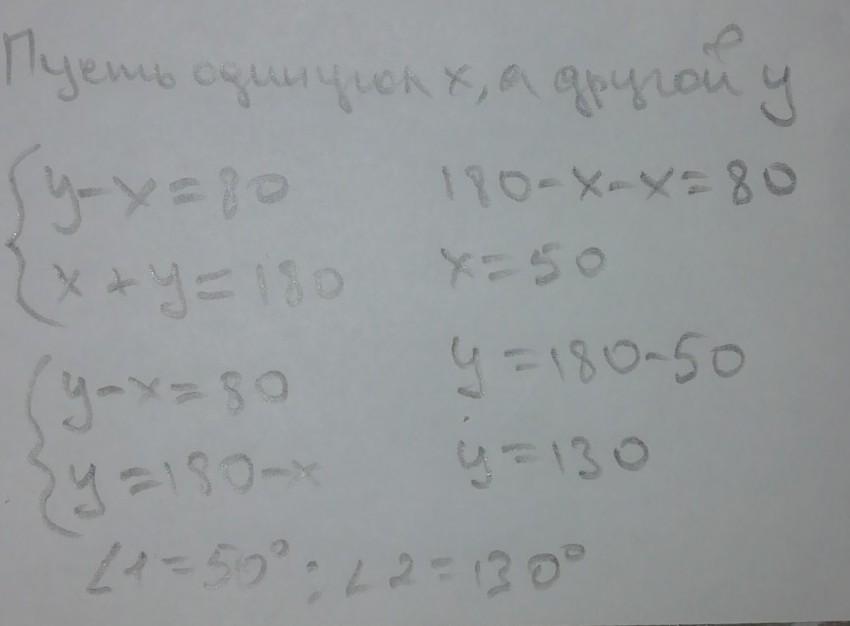 Пусть один угол x, а другой y
y-x=80
x+y=180
y-x=80
y=180-x
180-x-x=80
x=50
y=180-50
y=130
∠1=50°; ∠2=130°